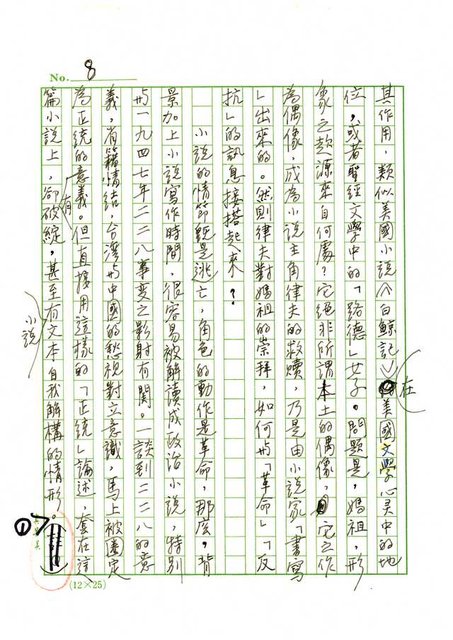 No. 8
其作用,類似美國小說《白鯨記》在美國文學心灵中的地
位,或者聖經文學中的「路德」女子。問題是,媽祖,形
象之款源來自何處?它絕非所謂本土的偶像,它之作
為偶像,成為小說主角律夫的救贖,乃是由小說家「書寫
」出來的。然則律夫對媽祖的崇拜,如何與「革命」「反
抗」的訊息接搭起來?
小說的情節經是逃亡,角色的動作是革命,那麼,背
景加上小說寫作時間,很容易被解讀成政治小說,特別
與一九四七年二二八事变之影射有關。一談到二二八的意
義,省籍情結,台湾與中國的愁視對立意識,馬上被圈定
為正統的意義。但直接用這樣的「正統」論述,套在這
篇小說上,卻有破綻,甚至有小說文本自我解構的情形。
(12×25)